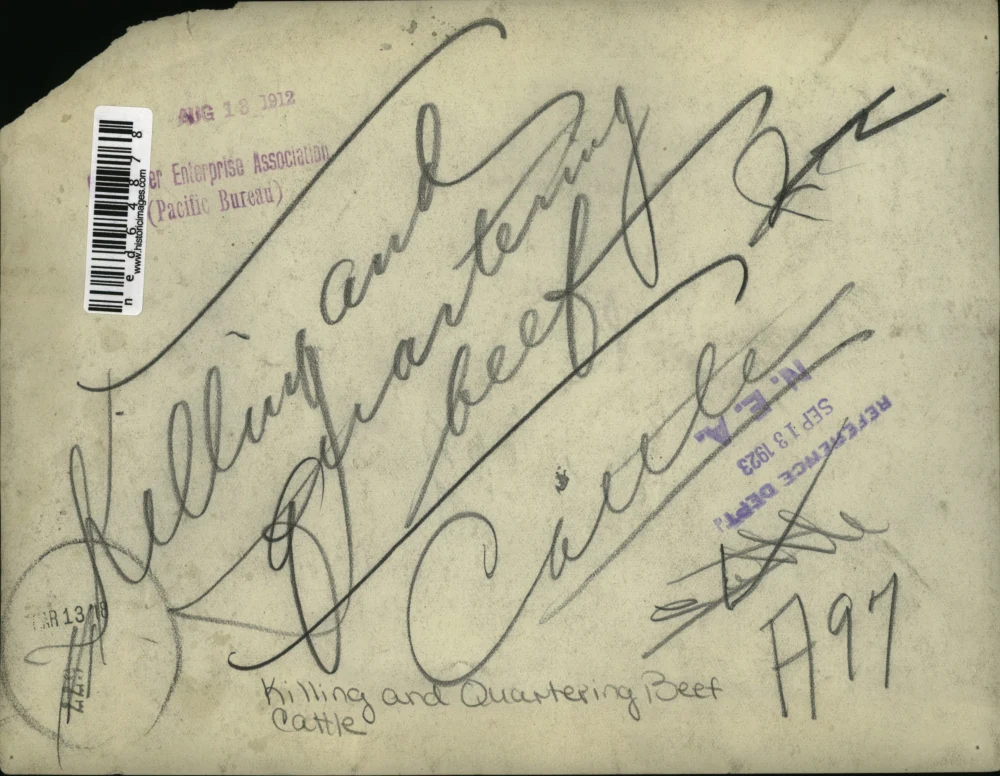 AUG 18 1912
er Enterprise Association
(Pacific Bureau)
ned64878
www.historicimages.com
Killing and
Quartering
beef
Cattle
N. E. A.
SEP 13 1923
REFERENCE DEPT.
A97
AR 13
Killing and Quartering Beef
Cattle